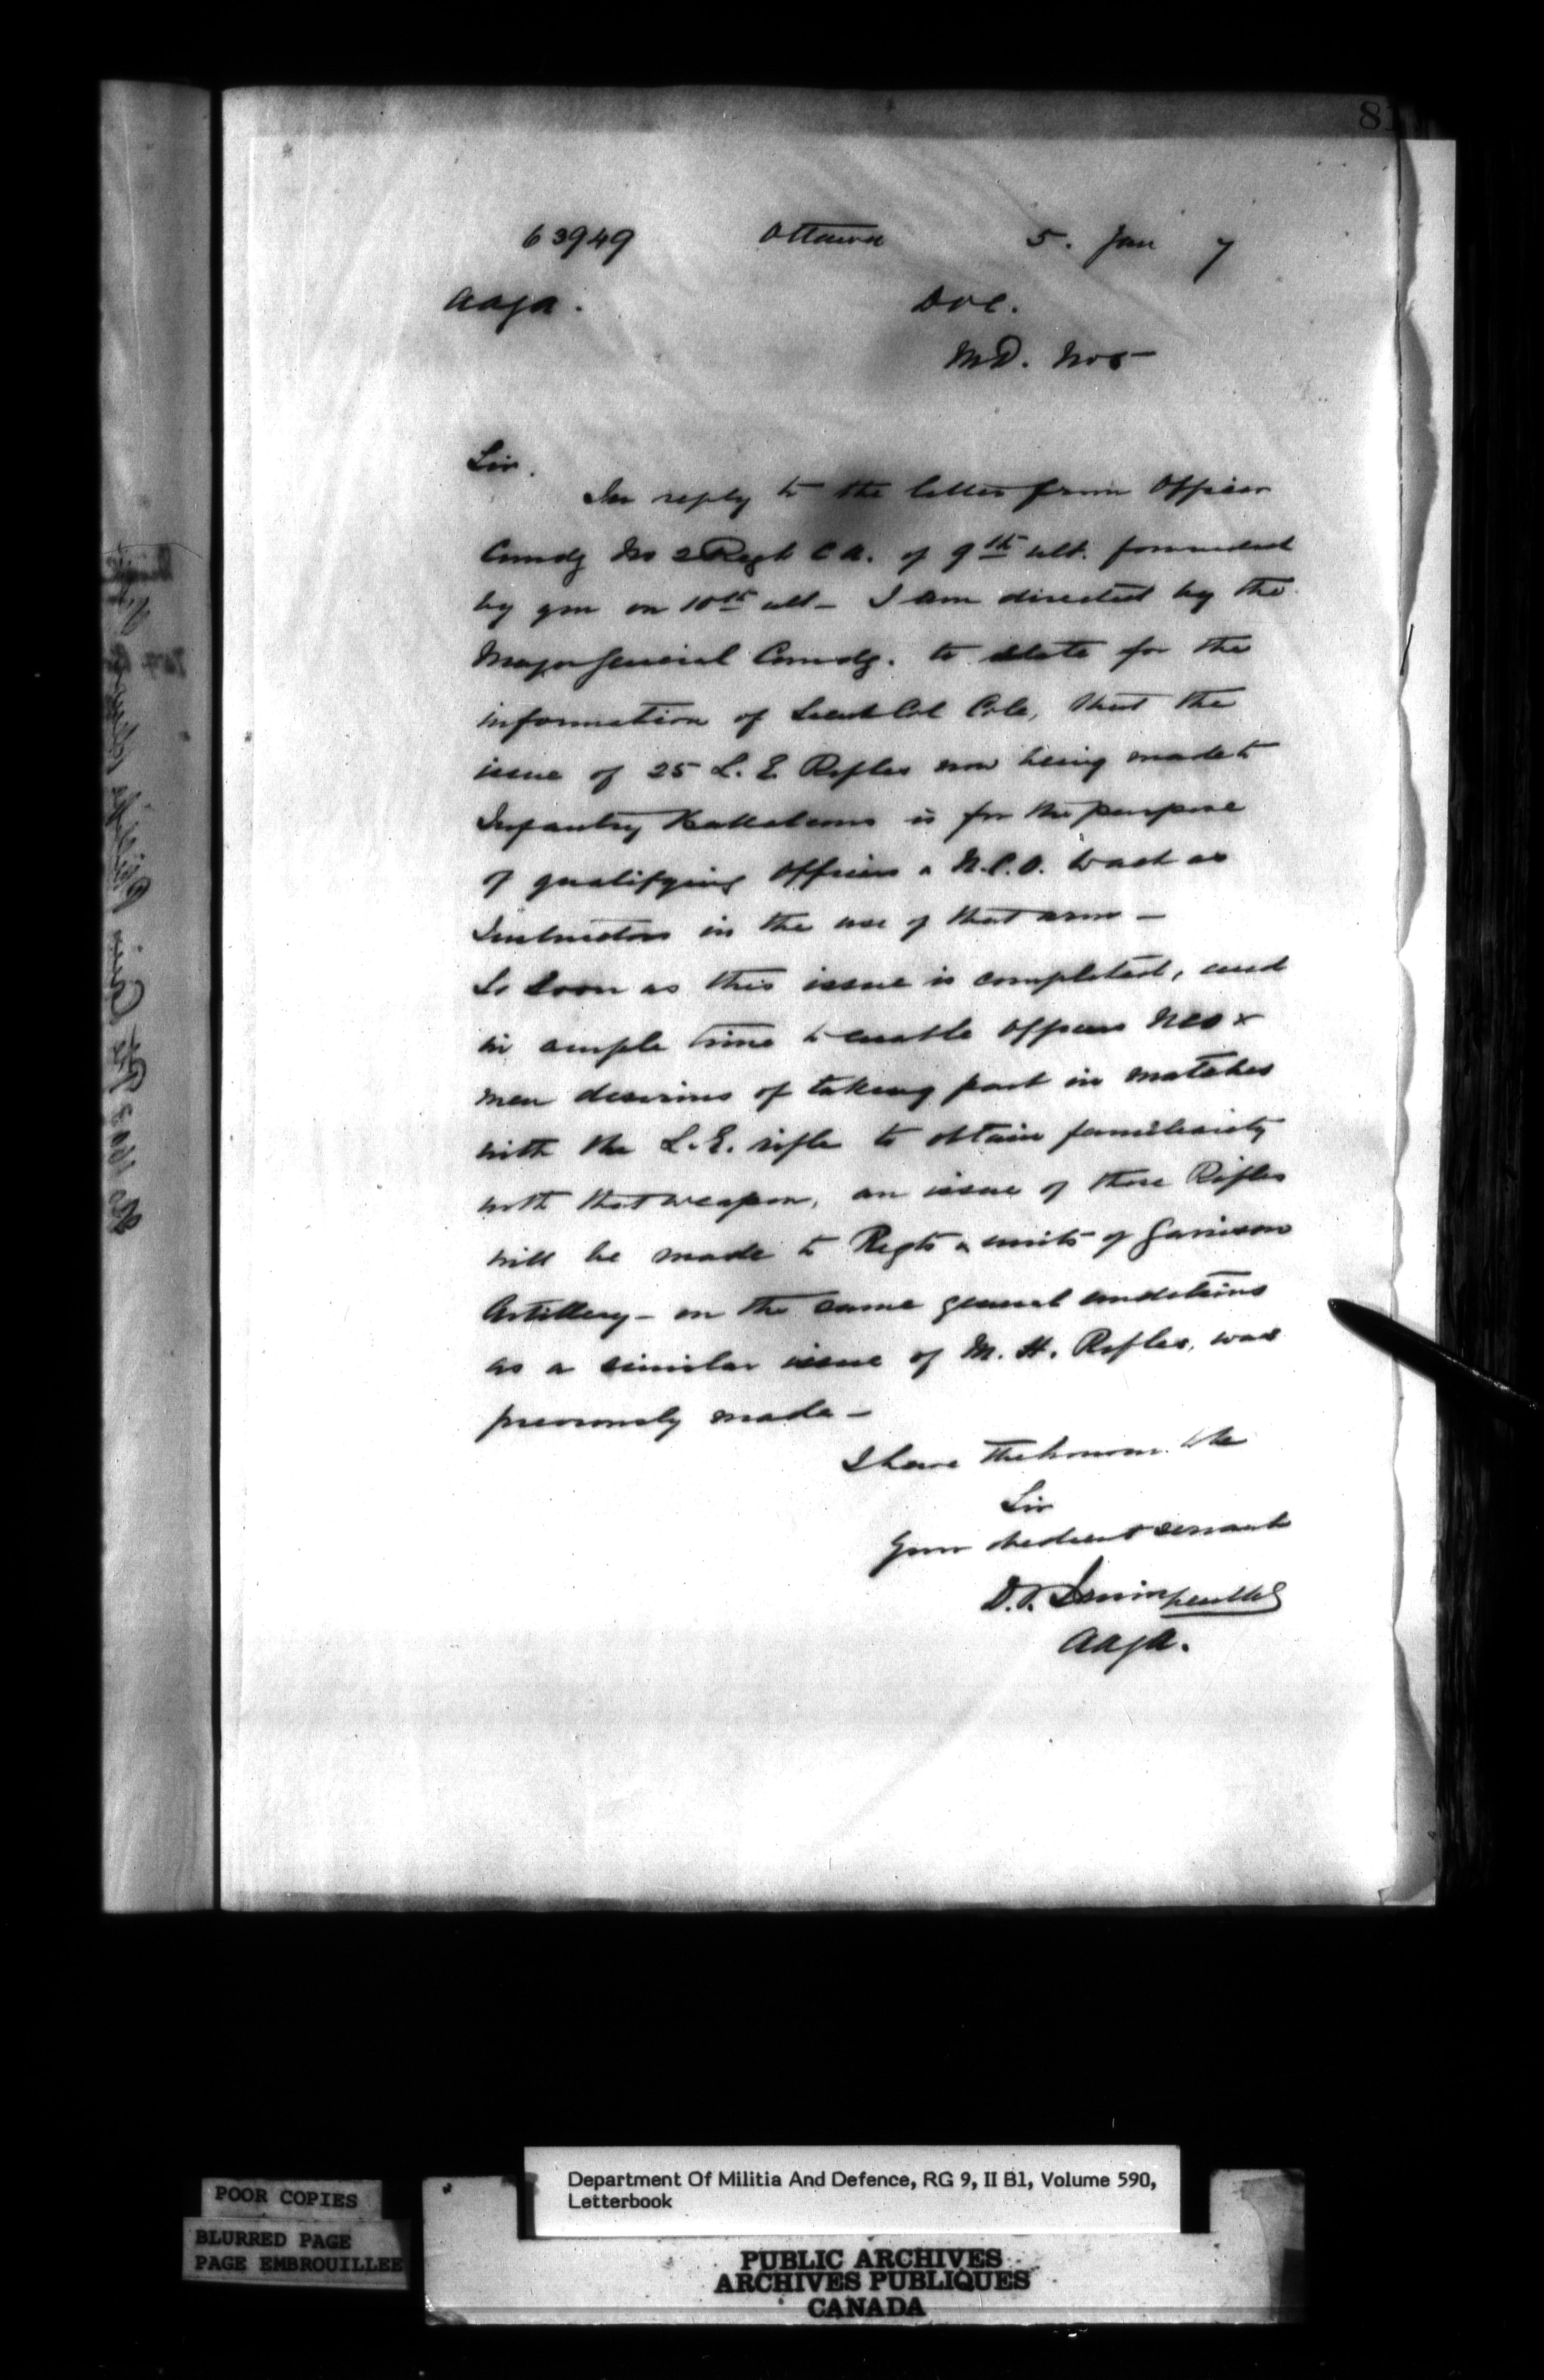 81
63949 Ottawa 5. Jan 7
AAGA. DOC.
M.D. No 5
Sir.
In reply to the letter from Officer
Comdg No 2 Regt C A. of 9th ult. forwarded
by you on 10th ult - I am directed by the
Major General Comdg. to state for the
information of Lieut Col Cole, that the
issue of 25 L. E Rifles now being made to
Infantry Battalions is for the purpose
of qualifying Officers & N.C.O. to act as
Instructors in the use of that arm -
So soon as this issue is completed, and
in ample time to enable Officers NCO &
men desirous of taking part in matches
with the L.E. rifle to obtain familiarity
with that weapon, an issue of these Rifles
will be made to Regts & units of Garrison
Artillery - on the same general conditions
as a similar issue of M. H. Rifles, was
previously made -
I have the honour to be
Sir
Your obedient servant
D.T. Irwin
AAGA.
Department Of Militia And Defence, RG 9, II B1, Volume 590,
Letterbook
POOR COPIES
BLURRED PAGE
PAGE EMBROUILLEE
PUBLIC ARCHIVES
ARCHIVES PUBLIQUES
CANADA